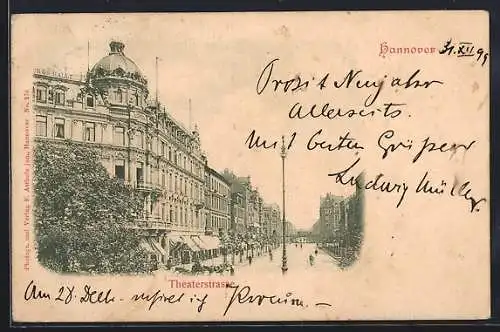 Hannover 31.XII.99
Prosit Neujahr
Allerseits.
Mit besten Grüssen
Ludwig Müller
Photogr. und Verlag v. Karl Hannover No.
Theaterstrasse
Am 28. Dec.